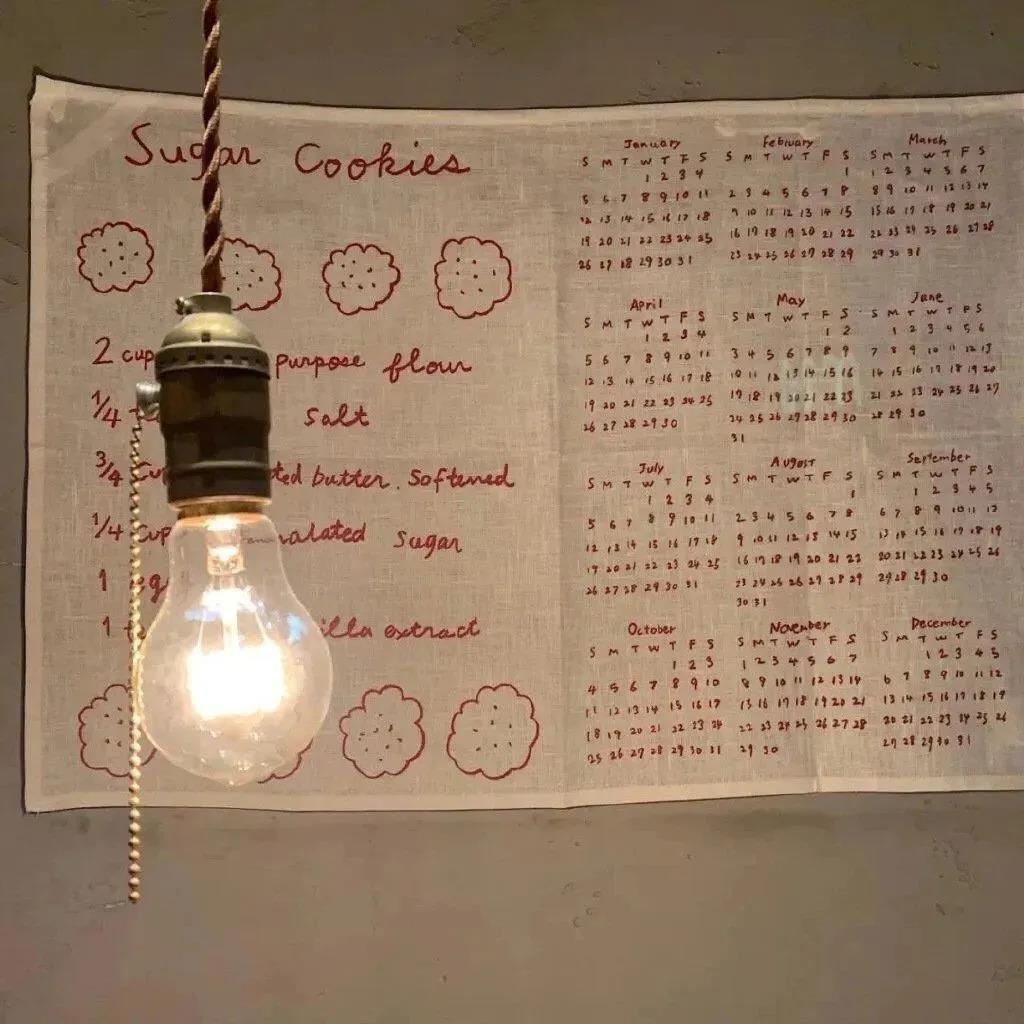 Sugar Cookies
2 purpose flour
1/4 salt
3/4 Cup butter, softened
1/4 Cup Sugar
1
1 extract
January
S M T W T F S
1 2 3 4
5 6 7 8 9 10 11
12 13 14 15 16 17 18
19 20 21 22 23 24 25
26 27 28 29 30 31
February
S M T W T F S
1
2 3 4 5 6 7 8
9 10 11 12 13 14 15
16 17 18 19 20 21 22
23 24 25 26 27 28 29
March
S M T W T F S
1 2 3 4 5 6 7
8 9 10 11 12 13 14
15 16 17 18 19 20 21
22 23 24 25 26 27 28
29 30 31
April
S M T W T F S
1 2 3 4
5 6 7 8 9 10 11
12 13 14 15 16 17 18
19 20 21 22 23 24 25
26 27 28 29 30
May
S M T W T F S
1 2
3 4 5 6 7 8 9
10 11 12 13 14 15 16
17 18 19 20 21 22 23
24 25 26 27 28 29 30
31
June
S M T W T F S
1 2 3 4 5 6
7 8 9 10 11 12 13
14 15 16 17 18 19 20
21 22 23 24 25 26 27
28 29 30
July
S M T W T F S
1 2 3 4
5 6 7 8 9 10 11
12 13 14 15 16 17 18
19 20 21 22 23 24 25
26 27 28 29 30 31
August
S M T W T F S
1
2 3 4 5 6 7 8
9 10 11 12 13 14 15
16 17 18 19 20 21 22
23 24 25 26 27 28 29
30 31
September
S M T W T F S
1 2 3 4 5
6 7 8 9 10 11 12
13 14 15 16 17 18 19
20 21 22 23 24 25 26
27 28 29 30
October
S M T W T F S
1 2 3
4 5 6 7 8 9 10
11 12 13 14 15 16 17
18 19 20 21 22 23 24
25 26 27 28 29 30 31
November
S M T W T F S
1 2 3 4 5 6 7
8 9 10 11 12 13 14
15 16 17 18 19 20 21
22 23 24 25 26 27 28
29 30
December
S M T W T F S
1 2 3 4 5
6 7 8 9 10 11 12
13 14 15 16 17 18 19
20 21 22 23 24 25 26
27 28 29 30 31